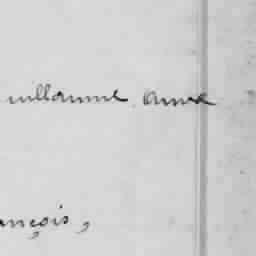 uillaume Anne
ançois,